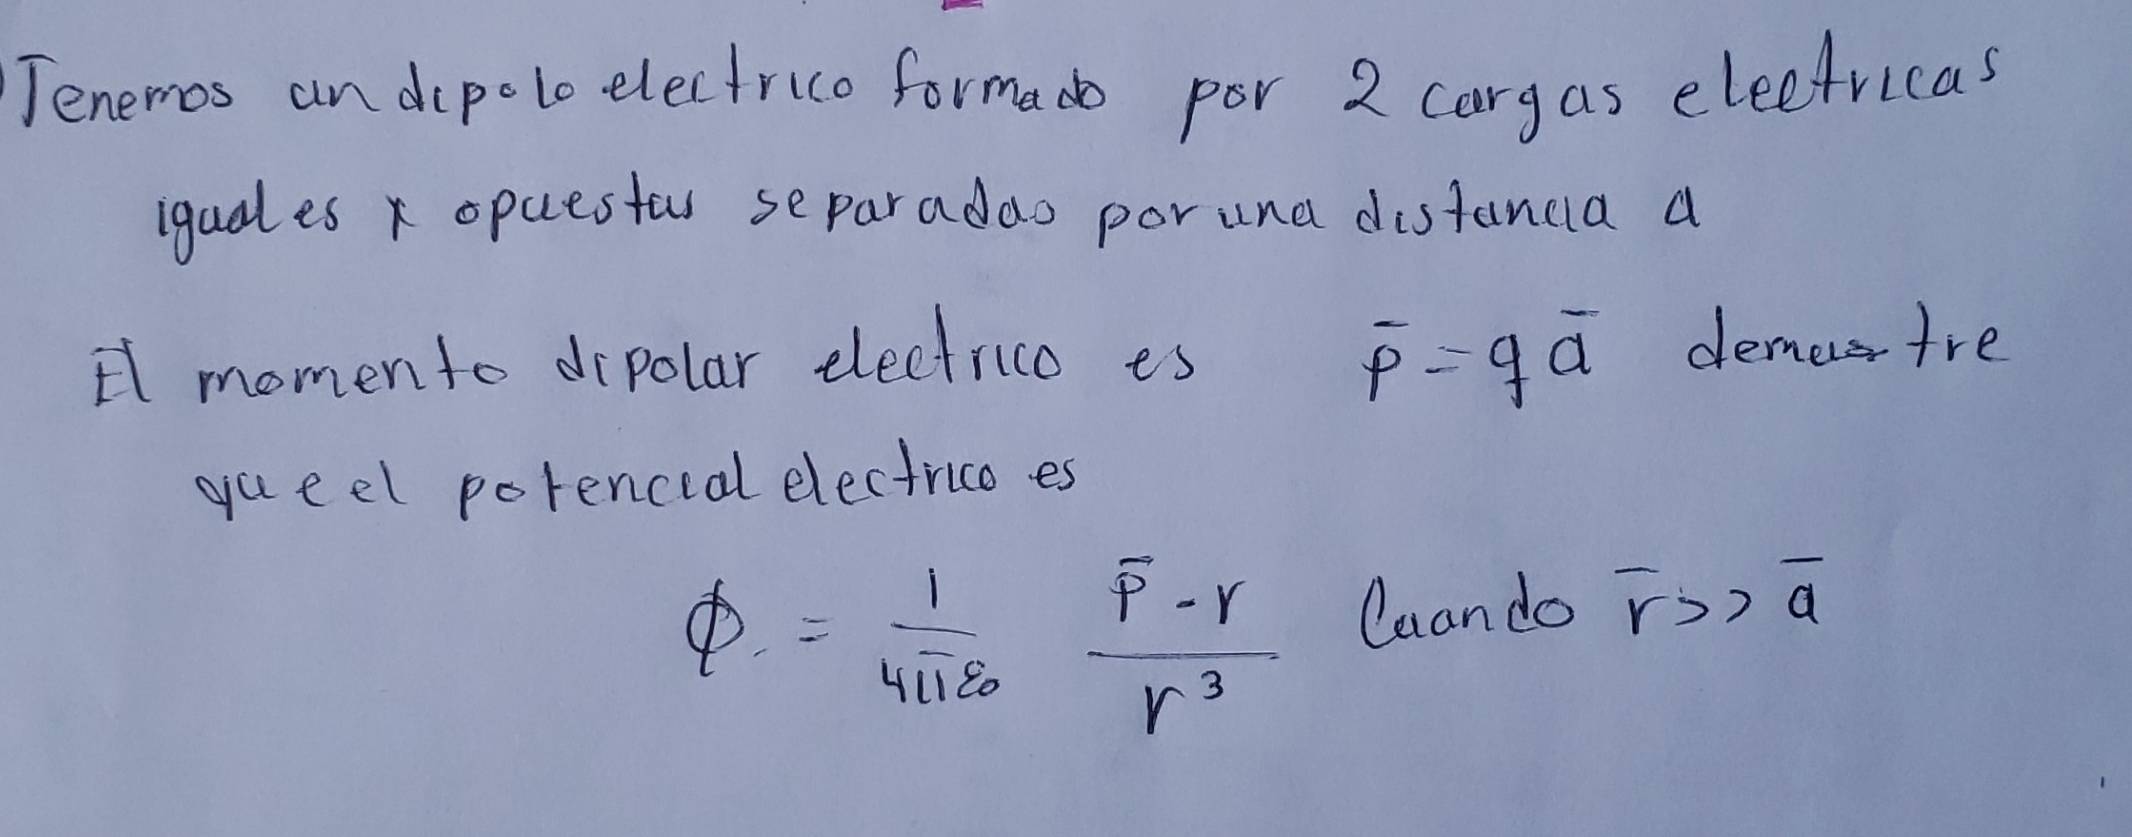 Tenemos un dipolo electrico formado por 2 cargas electricas
iguales y opuestas separadas por una distancia a
El momento dipolar electrico es p̄ = q ā demuestre
que el potencial electrico es
ϕ. = 1/4πε₀ p̄ - r / r³ Cuando r̄ >> ā